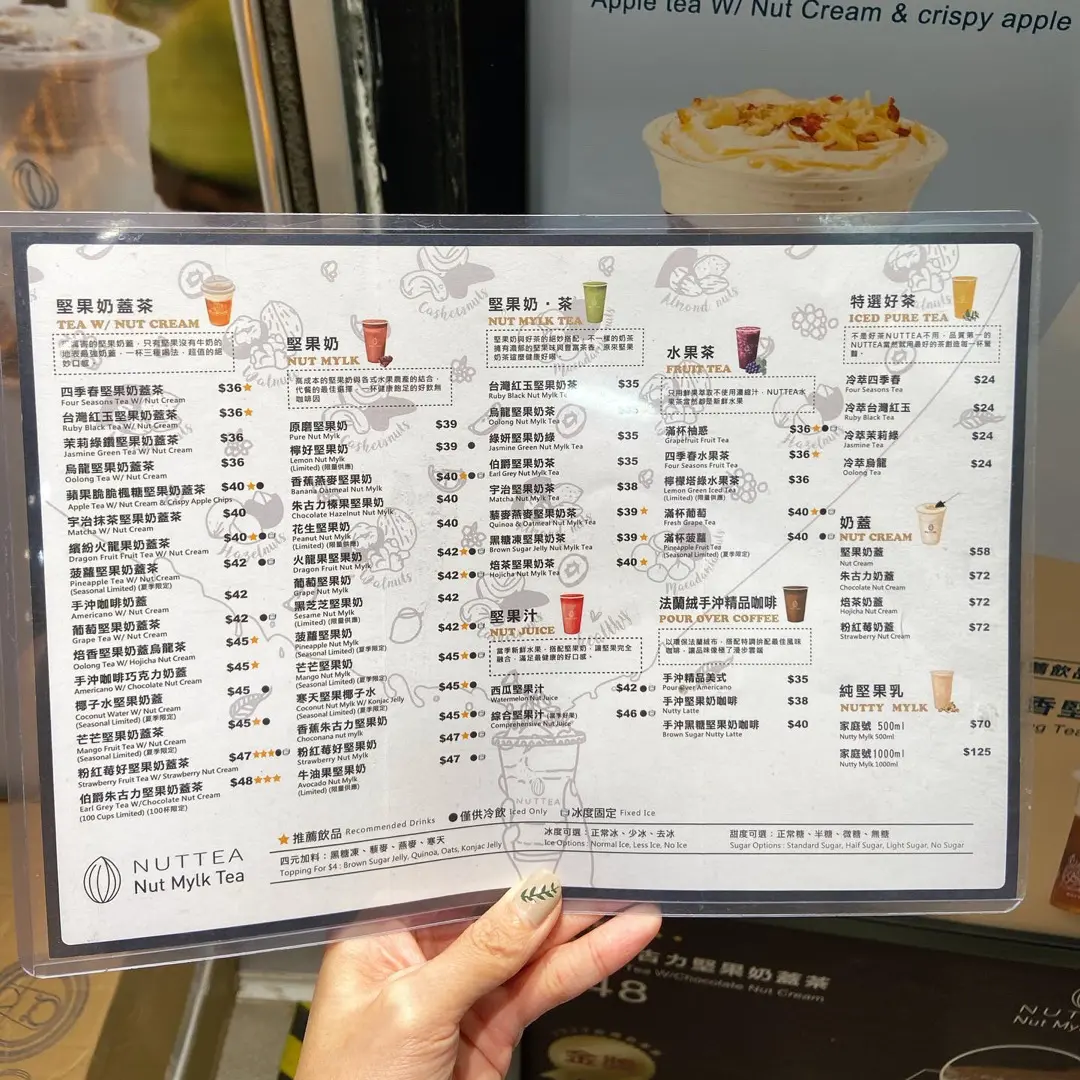 Apple tea W/ Nut Cream & crispy apple
堅果奶蓋茶
TEA W/ NUT CREAM
四季春堅果奶蓋茶 $36
Four Seasons Tea W/ Nut Cream
台灣紅玉堅果奶蓋茶 $36
Ruby Black Tea W/ Nut Cream
茉莉綠鑽堅果奶蓋茶 $36
Jasmine Green Tea W/ Nut Cream
烏龍堅果奶蓋茶 $36
Oolong Tea W/ Nut Cream
蘋果脆脆楓糖堅果奶蓋茶 $40
Apple Tea W/ Nut Cream & Crispy Apple Chips
宇治抹茶堅果奶蓋茶 $40
Matcha W/ Nut Cream
繽紛火龍果堅果奶蓋茶 $40
Dragon Fruit Fruit Tea W/ Nut Cream
菠蘿堅果奶蓋茶 $42
Pineapple Tea W/ Nut Cream
(Seasonal Limited) (夏季限定)
手沖咖啡奶蓋 $42
Americano W/ Nut Cream
葡萄堅果奶蓋茶 $42
Grape Tea W/ Nut Cream
焙香堅果奶蓋烏龍茶 $45
Oolong Tea W/ Hojicha Nut Cream
手沖咖啡巧克力奶蓋 $45
Americano W/ Chocolate Nut Cream
椰子水堅果奶蓋 $45
Coconut Water W/ Nut Cream
(Seasonal Limited) (夏季限定)
芒芒堅果奶蓋茶 $45
Mango Fruit Tea W/ Nut Cream
(Seasonal Limited) (夏季限定)
粉紅莓好堅果奶蓋茶 $47
Strawberry Fruit Tea W/ Strawberry Nut Cream
伯爵朱古力堅果奶蓋茶 $48
Earl Grey Tea W/Chocolate Nut Cream
(100 Cups Limited) (100杯限定)
堅果奶
NUT MYLK
高成本的堅果奶與各式水果農產的結合，
代餐的最佳選擇，一杯健康飽足的好飲無
咖啡因
原磨堅果奶 $39
Pure Nut Mylk
檸好堅果奶 $39
Lemon Nut Mylk
(Limited) (限量供應)
香蕉燕麥堅果奶 $40
Banana Oatmeal Nut Mylk
朱古力榛果堅果奶 $40
Chocolate Hazelnut Nut Mylk
花生堅果奶 $40
Peanut Nut Mylk
(Limited) (限量供應)
火龍果堅果奶 $42
Dragon Fruit Nut Mylk
葡萄堅果奶 $42
Grape Nut Mylk
黑芝芝堅果奶 $42
Sesame Nut Mylk
(Limited) (限量供應)
菠蘿堅果奶 $42
Pineapple Nut Mylk
(Seasonal Limited) (夏季限定)
芒芒堅果奶 $45
Mango Nut Mylk
(Seasonal Limited) (夏季限定)
寒天堅果椰子水 $45
Coconut Nut Mylk W/ Konjac Jelly
(Seasonal Limited) (夏季限定)
香蕉朱古力堅果奶 $45
Choconana nut mylk
粉紅莓好堅果奶 $47
Strawberry Nut Mylk
牛油果堅果奶 $47
Avocado Nut Mylk
(Limited) (限量供應)
堅果奶・茶
NUT MYLK TEA
堅果奶與好茶的絕妙搭配，不一樣的奶茶
擁有濃郁的堅果味與豐富茶香，原來堅果
奶茶這麼健康好喝
台灣紅玉堅果奶茶 $35
Ruby Black Nut Mylk Tea
烏龍堅果奶茶
Oolong Nut Mylk Tea
綠妍堅果奶綠 $35
Jasmine Green Nut Mylk Tea
伯爵堅果奶茶 $35
Earl Grey Nut Mylk Tea
宇治堅果奶茶 $38
Matcha Nut Mylk Tea
藜麥燕麥堅果奶茶 $39
Quinoa & Oatmeal Nut Mylk Tea
黑糖凍堅果奶茶 $39
Brown Sugar Jelly Nut Mylk Tea
焙茶堅果奶茶 $40
Hojicha Nut Mylk Tea
堅果汁
NUT JUICE
當季新鮮水果，搭配堅果奶，讓堅果完全
融合，滿足最健康的好口感。
西瓜堅果汁 $42
Watermelon Nut Juice
綜合堅果汁(當季好果) $46
Comprehensive Nut Juice
水果茶
FRUIT TEA
只用鮮果萃取不使用濃縮汁，NUTTEA水
果茶當然都是新鮮水果
滿杯柚惑 $36
Grapefruit Fruit Tea
四季春水果茶 $36
Four Seasons Fruit Tea
檸檬塔綠水果茶 $36
Lemon Green Iced Tea
(Limited) (限量供應)
滿杯葡萄 $40
Fresh Grape Tea
滿杯菠蘿 $40
Pineapple Fruit Tea
(Seasonal Limited) (夏季限定)
法蘭絨手沖精品咖啡
POUR OVER COFFEE
以環保法蘭絨布，搭配特調拼配最佳風味
咖啡，讓品味像極了漫步雲端
手沖精品美式 $35
Pour over Americano
手沖堅果奶咖啡 $38
Nutty Latte
手沖黑糖堅果奶咖啡 $40
Brown Sugar Nutty Latte
特選好茶
ICED PURE TEA
不是好茶NUTTEA不用，品質第一的
NUTTEA當然就用最好的茶創造每一杯驚
豔
冷萃四季春 $24
Four Seasons Tea
冷萃台灣紅玉 $24
Ruby Black Tea
冷萃茉莉綠 $24
Jasmine Tea
冷萃烏龍 $24
Oolong Tea
奶蓋
NUT CREAM
堅果奶蓋 $58
Nut Cream
朱古力奶蓋 $72
Chocolate Nut Cream
焙茶奶蓋 $72
Hojicha Nut Cream
粉紅莓奶蓋 $72
Strawberry Nut Cream
純堅果乳
NUTTY MYLK
家庭號 500ml $70
Nutty Mylk 500ml
家庭號1000ml $125
Nutty Mylk 1000ml
推薦飲品 Recommended Drinks 僅供冷飲 Iced Only 冰度固定 Fixed Ice
四元加料：黑糖凍、藜麥、燕麥、寒天
Topping For $4 : Brown Sugar Jelly, Quinoa, Oats, Konjac Jelly
冰度可選：正常冰、少冰、去冰
Ice Options : Normal Ice, Less Ice, No Ice
甜度可選：正常糖、半糖、微糖、無糖
Sugar Options : Standard Sugar, Half Sugar, Light Sugar, No Sugar
NUTTEA
Nut Mylk Tea
NUTTEA
古力堅果奶蓋茶
Tea W/Chocolate Nut Cream
48